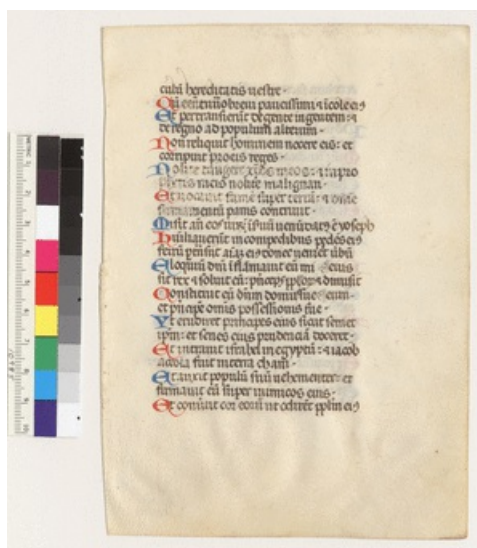 culū hereditatis uestre·
Qū eēnt nūo breui paucissimi ⁊ icole eiꝰ
Et pertransierūt de gente in gentem: ⁊
de regno ad populum alterum·
Non reliquit hominem nocere eis: et
corripuit pro eis reges·
Nolite tangere xp̄os meos: ⁊ in pro
phetis meis nolite malignari·
Et uocauit famē super terrā: ⁊ omne
firmamentū panis contriuit·
Misit an̄ eos uirū: uenūdatꝰ ē yoseph
Humiliauerūt in compedibus pedes eiꝰ
ferrū aīaꝫ eiꝰ donec ueniret ūbū
Eloquiū dnī iflamauit eū mi eius
sit rex ⁊ soluit eū: pn̄ceps pploꝝ ⁊ dimisit
Constituit eū dn̄m domus sue eum·
et pn̄cipē omīs possessionis sue·
Vt erudiret principes eius sicut semet
ipm: et senes eius prudenciā doceret·
Et intrauit israhel in egyptū: ⁊ iacob
accola fuit in terra cham·
Et auxit populū suū uehementer: et
firmauit eū super inimicos eius·
Et conūtit cor eoꝝ ut odirēt pplm eiꝰ